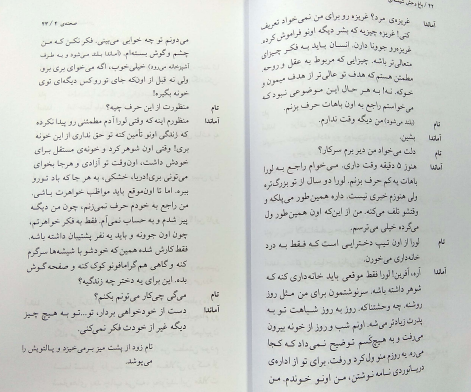 ۴۲ / باغ وحش شیشه‌ای
آماندا غریزه‌ی مرد؟ غریزه رو برای من نمی‌خواد تعریف
کنی! غریزه چیزیه که بشر دیگه اونو فراموش کرده
غریزه‌رو حیوونا دارن. انسان بیاید به فکر چیزای
متعالی‌تر باشه. چیزایی که مربوط به عقل و روحه.
مطمئن هستم که هدف تو عالی‌تر از هدف میمون و
خوکه. نه! به هر حال این موضوعی نبود که
می‌خواستم راجع به اون باهات حرف بزنم.
تام (بلند می‌شود) من دیگه وقت ندارم.
آماندا بشین.
تام دلت می‌خواد من دیر برم سرکار؟
آماندا هنوز ۵ دقیقه وقت داری. می‌خوام راجع به لورا
باهات یه کم حرف بزنم. لورا دو سال از تو بزرگ‌تره
ولی هنوزم خبری نیست. داره همین‌طور می‌پلکه و
وقتشو تلف می‌کنه. من از این‌که اون همین‌طور ول
می‌گرده خیلی می‌ترسم.
تام لورا از اون تیپ دخترایی است که فقط به درد
خانه‌داری می‌خورن.
آماندا آره، آفرین! لورا فقط موقعی باید خانه‌داری کنه که
شوهر داشته باشه. سرنوشتمون برای من مثل روز
روشنه. چه وحشتناکه. روز به روز شباهت تو به
پدرت زیادتر می‌شه. اونم شب و روز از خونه بیرون
می‌رفت و به هیچ‌کسم توضیح نمی‌داد که کجا
می‌ره. یه روزم منو ول کرد و رفت. برای تو از اداره‌ی
دریانوردی نامه نوشتن، من اونو خوندم. من
صحنه‌ی ۴ / ۴۳
می‌دونم تو چه خوابی می‌بینی. فکر نکن که من
چشم و گوش بسته‌ام. (آماندا بلند می‌شود و به طرف
آشپزخانه می‌رود) خیلی‌خوب، اگه می‌خوای بری برو
ولی نه قبل از اون‌که جای تو رو کس دیگه‌ای توی
خونه بگیره!
تام منظورت از این حرف چیه؟
آماندا منظورم اینه که وقتی لورا آدم مطمئنی رو پیدا نکرده
که زندگی اونو تأمین کنه تو حق نداری از این خونه
بری! وقتی اون شوهر کرد و خونه‌ی مستقل برای
خودش داشت، اون‌وقت تو آزادی و هرجا بخوای
می‌تونی بری! دریا، خشکی، به هر جا که باد تو رو
ببره. اما تا اون‌موقع باید مواظب خواهرت باشی.
من راجع به خودم حرف نمی‌زنم، چون من دیگه
پیر شدم و به حساب نمی‌آم. فقط به فکر خواهرتم،
چون اون جوونه و باید یه نفر پشتیبان داشته باشه.
فقط کارش شده همین که خودشو با شیشه‌ها سرگرم
کنه و گاهی هم گرامافونو کوک کنه و صفحه گوش
بده. این برای یه دختر چه زندگیه؟
تام می‌گی چی‌کار می‌تونم بکنم؟
آماندا دست از خودخواهی بردار، تو... تو به هیچ چیز
دیگه غیر از خودت فکر نمی‌کنی.
تام زود از پشت میز برمی‌خیزد و پالتویش را
می‌پوشد.